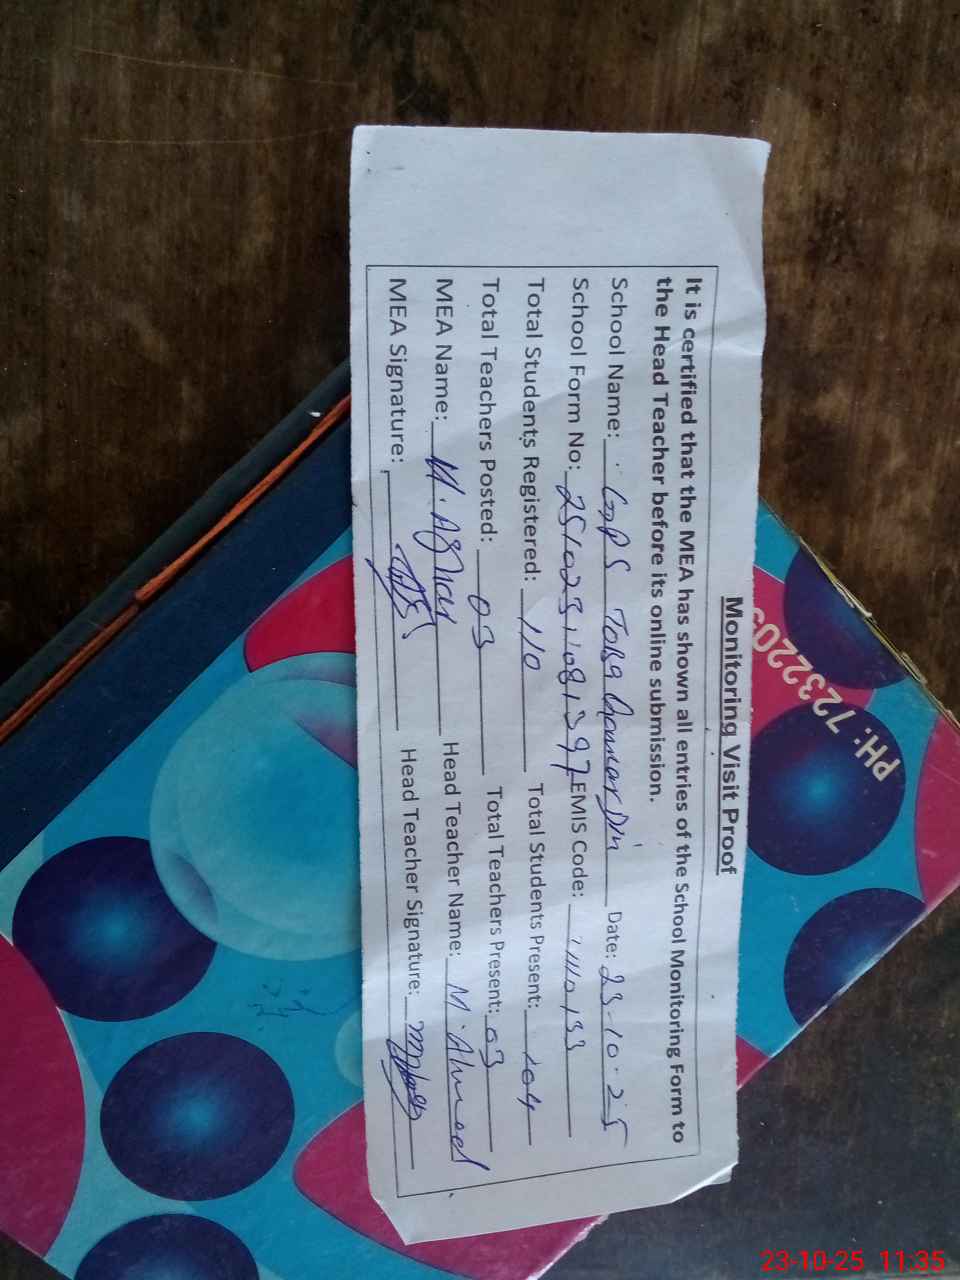 Monitoring Visit Proof
It is certified that the MEA has shown all entries of the School Monitoring Form to
the Head Teacher before its online submission.
School Name: GGPS Date: 23-10-25
School Form No: EMIS Code:
Total Students Registered: 110 Total Students Present: 104
Total Teachers Posted: 03 Total Teachers Present: 03
MEA Name: M. Head Teacher Name: M. Ahmed
MEA Signature: Head Teacher Signature:
PH: 7232203
23-10-25 11:35